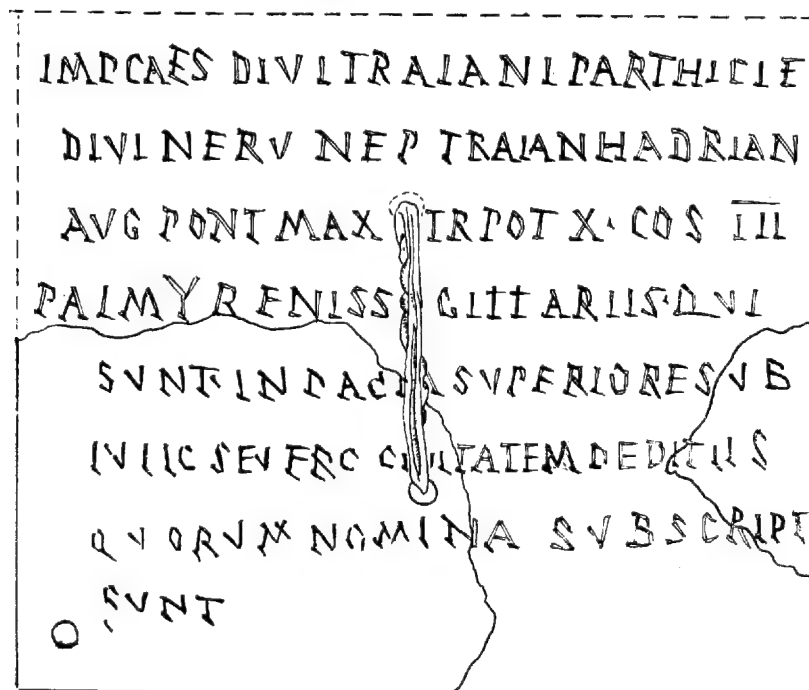 IMP CAES DIVI TRAIANI PARTHICI F
DIVI NERV NEP TRAIAN HADRIAN
AVG PONT MAX TR POT X· COS III
PALMYRENIS SAGITTARIIS· QVI
SVNT· IN DACIA SVPERIORE SVB
IVLIO SEVERO CIVITATEM DEDIT IIS
QVORVM NOMINA SVBSCRIPT
SVNT